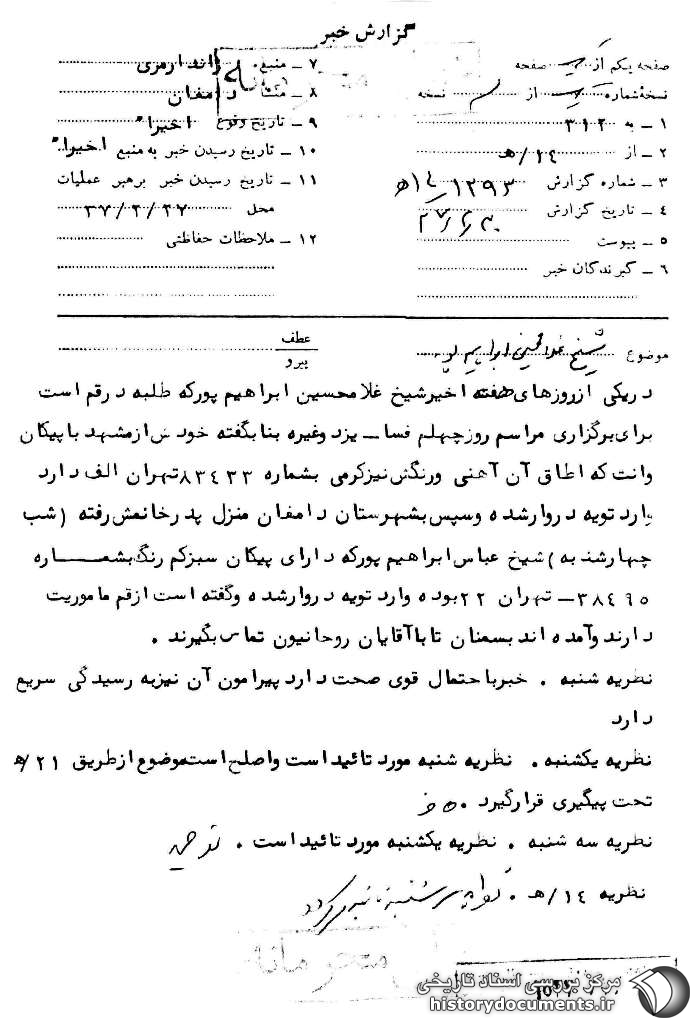 گزارش خبر
صفحه یکم از یک صفحه
نسخهٔ شماره از نسخه
۱ ـ به ۳۱۲
۲ ـ از ۱۴/ه‍
۳ ـ شماره گزارش ۱۲۹۳/۱۴ه‍
۴ ـ تاریخ گزارش
۵ ـ پیوست
۶ ـ گیرندگان خبر
۷ ـ منبع ژاندارمری
۸ ـ منشأ دامغان
۹ ـ تاریخ وقوع اخیراً
۱۰ ـ تاریخ رسیدن خبر به منبع اخیراً
۱۱ ـ تاریخ رسیدن خبر برهبر عملیات
محل ۳۷/۲/۲۷
۱۲ ـ ملاحظات حفاظتی
موضوع شیخ غلامحسین ابراهیم پور
عطف
پیرو
دریکی ازروزهای هفته اخیرشیخ غلامحسین ابراهیم پورکه طلبه درقم است
برای برگزاری مراسم روزچهلم فسا ـ یزد وغیره بنابگفته خودش ازمشهد با پیکان
وانت که اطاق آن آهنی ورنگش نیزکرمی بشماره ۸۳۴۳۳تهران الف دارد
وارد تویه دروارشده وسپس بشهرستان دامغان منزل پدرخانمش رفته (شب
چهارشنبه) شیخ عباس ابراهیم پورکه دارای پیکان سبزکم رنگ بشماره
۳۸۴۹۵ـ تهران ۲۲بوده وارد تویه دروارشده وگفته است ازقم ماموریت
دارند وآمده اند بسمنان تا باآقایان روحانیون تماس بگیرند .
نظریه شنبه . خبرباحتمال قوی صحت دارد پیرامون آن نیزبه رسیدگی سریع
دارد
نظریه یکشنبه . نظریه شنبه مورد تائیداست واصلح است موضوع ازطریق ۲۱/ه‍
تحت پیگیری قرارگیرد .
نظریه سه شنبه . نظریه یکشنبه مورد تائیداست .
نظریه ۱۴/ه‍ .
مرکز بررسی اسناد تاریخی
historydocuments.ir